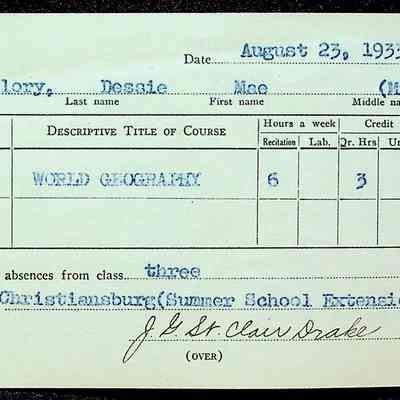 Date August 23, 1933
lory, Dessie Mae (M
Last name First name Middle na
Descriptive Title of Course Hours a week Credit
Recitation Lab. Qr. Hrs Un
WORLD GEOGRAPHY 6 3
absences from class three
Christiansburg(Summer School Extensio
J G St. Clair Drake
(OVER)